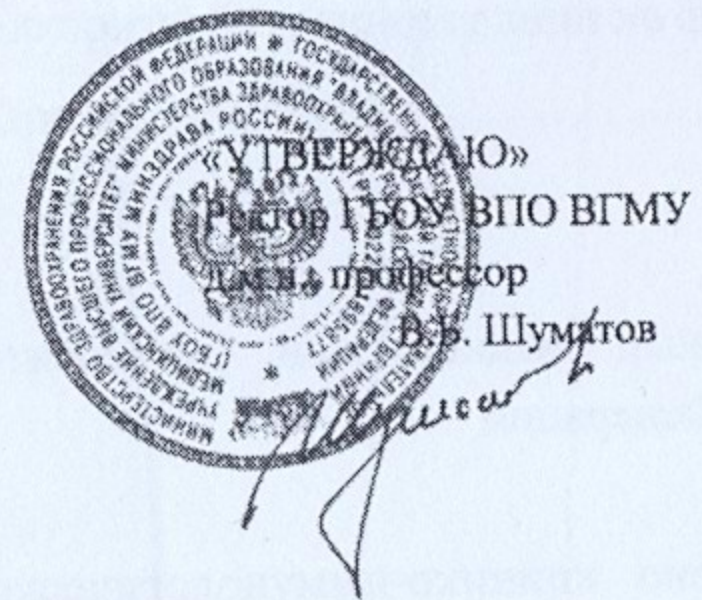 «УТВЕРЖДАЮ»
Ректор ГБОУ ВПО ВГМУ
д.м.н., профессор
В.Б. Шуматов
МИНИСТЕРСТВО ЗДРАВООХРАНЕНИЯ РОССИЙСКОЙ ФЕДЕРАЦИИ * ГОСУДАРСТВЕННОЕ
УЧРЕЖДЕНИЕ ВЫСШЕГО ПРОФЕССИОНАЛЬНОГО ОБРАЗОВАНИЯ
МЕДИЦИНСКИЙ УНИВЕРСИТЕТ" МИНИСТЕРСТВА ЗДРАВООХРАНЕНИЯ
(ГБОУ ВПО ВГМУ МИНЗДРАВА РОССИИ)